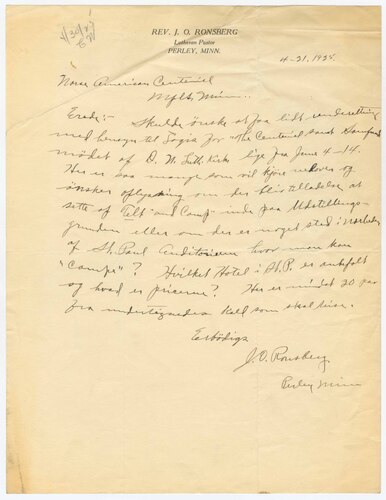 REV. J. O. RONSBERG
Lutheran Pastor
PERLEY, MINN.
4-21, 1925.
Norse American Centeniel
Mpls, Minn..
Skulde ønske at faa lidt underretning
med hensyn til Logis for "The Centeniel and
mødet af D. N. Luth. Kirke lige fra June 4-14.
Her er saa mange som vil kjöre
ønsker oplysning om der blir tilladelse at
sette op Telt and Camp inde paa Udstillings-
grunden eller om der er noget sted i nærheden
af St. Paul Auditorium hvor man kan
"Campe"? Hvilket Hotel i St. P. er anbefalt
og hvad er priserne? Her er mindst 20 par
fra undertegnedes Kald som skal reise.
Ærbödigs
J. O. Ronsberg
Perley Minn